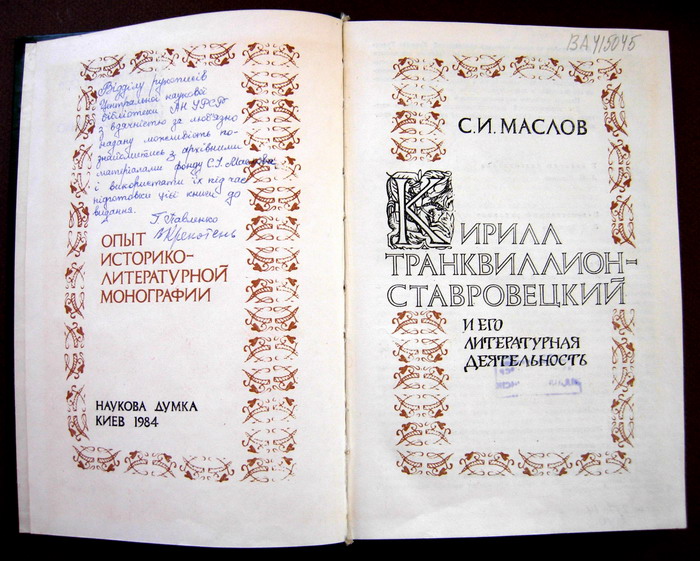 Відділу рукописів
Центральної наукової
бібліотеки АН УРСР
з вдячністю за люб'язно
надану можливість по-
знайомитись з архівними
матеріалами фонду С.І. Маслова
і використати їх під час
підготовки цієї книги до
видання.
Г. Павленко
В. Крекотень
ОПЫТ
ИСТОРИКО-
ЛИТЕРАТУРНОЙ
МОНОГРАФИИ
НАУКОВА ДУМКА
КИЕВ 1984
ВА415045
С.И. МАСЛОВ
КИРИЛЛ
ТРАНКВИЛЛИОН-
СТАВРОВЕЦКИЙ
И ЕГО
ЛИТЕРАТУРНАЯ
ДЕЯТЕЛЬНОСТЬ